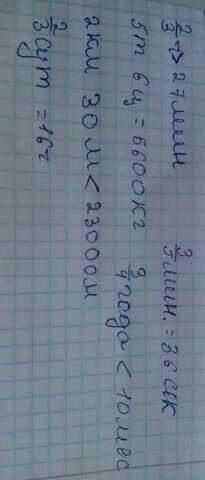 2/3 ч > 27 мин 3/5 мин. = 36 сек
5т 6ц = 5600кг 3/4 года < 10 мес
2 км 30 м < 23000м
2/3 сут = 16ч